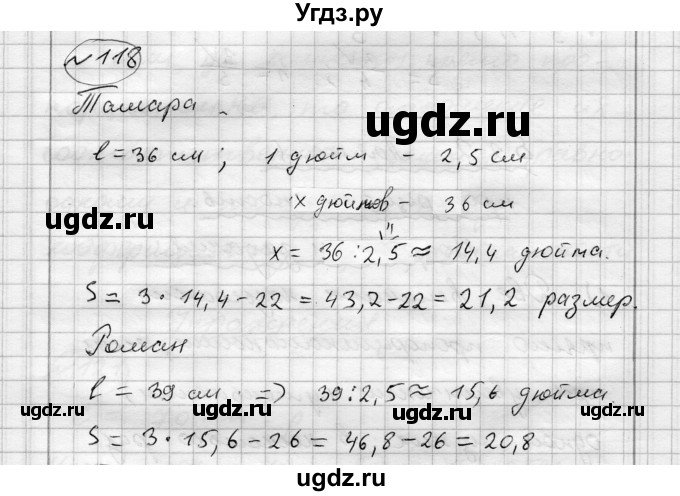 Угдз.ру
№118
Тамара
ugdz.ru
l = 36 см ; 1 дюйм – 2,5 см
x дюймов – 36 см
ugdz.ru
x = 36 : 2,5 ≈ 14,4 дюйма.
S = 3 · 14,4 – 22 = 43,2 – 22 = 21,2 размер.
Роман
l = 39 см. => 39 : 2,5 ≈ 15,6 дюйма
ugdz.ru ugdz.ru ugdz.ru
S = 3 · 15,6 – 26 = 46,8 – 26 = 20,8
ugdz.ru